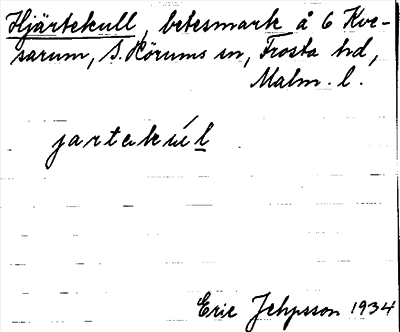 Hjärtekull, betesmark å 6 Kve-
sarum, S. Hörums sn, Frosta hd,
Malm. l.
jartekúl
Eric Jehpsson 1934